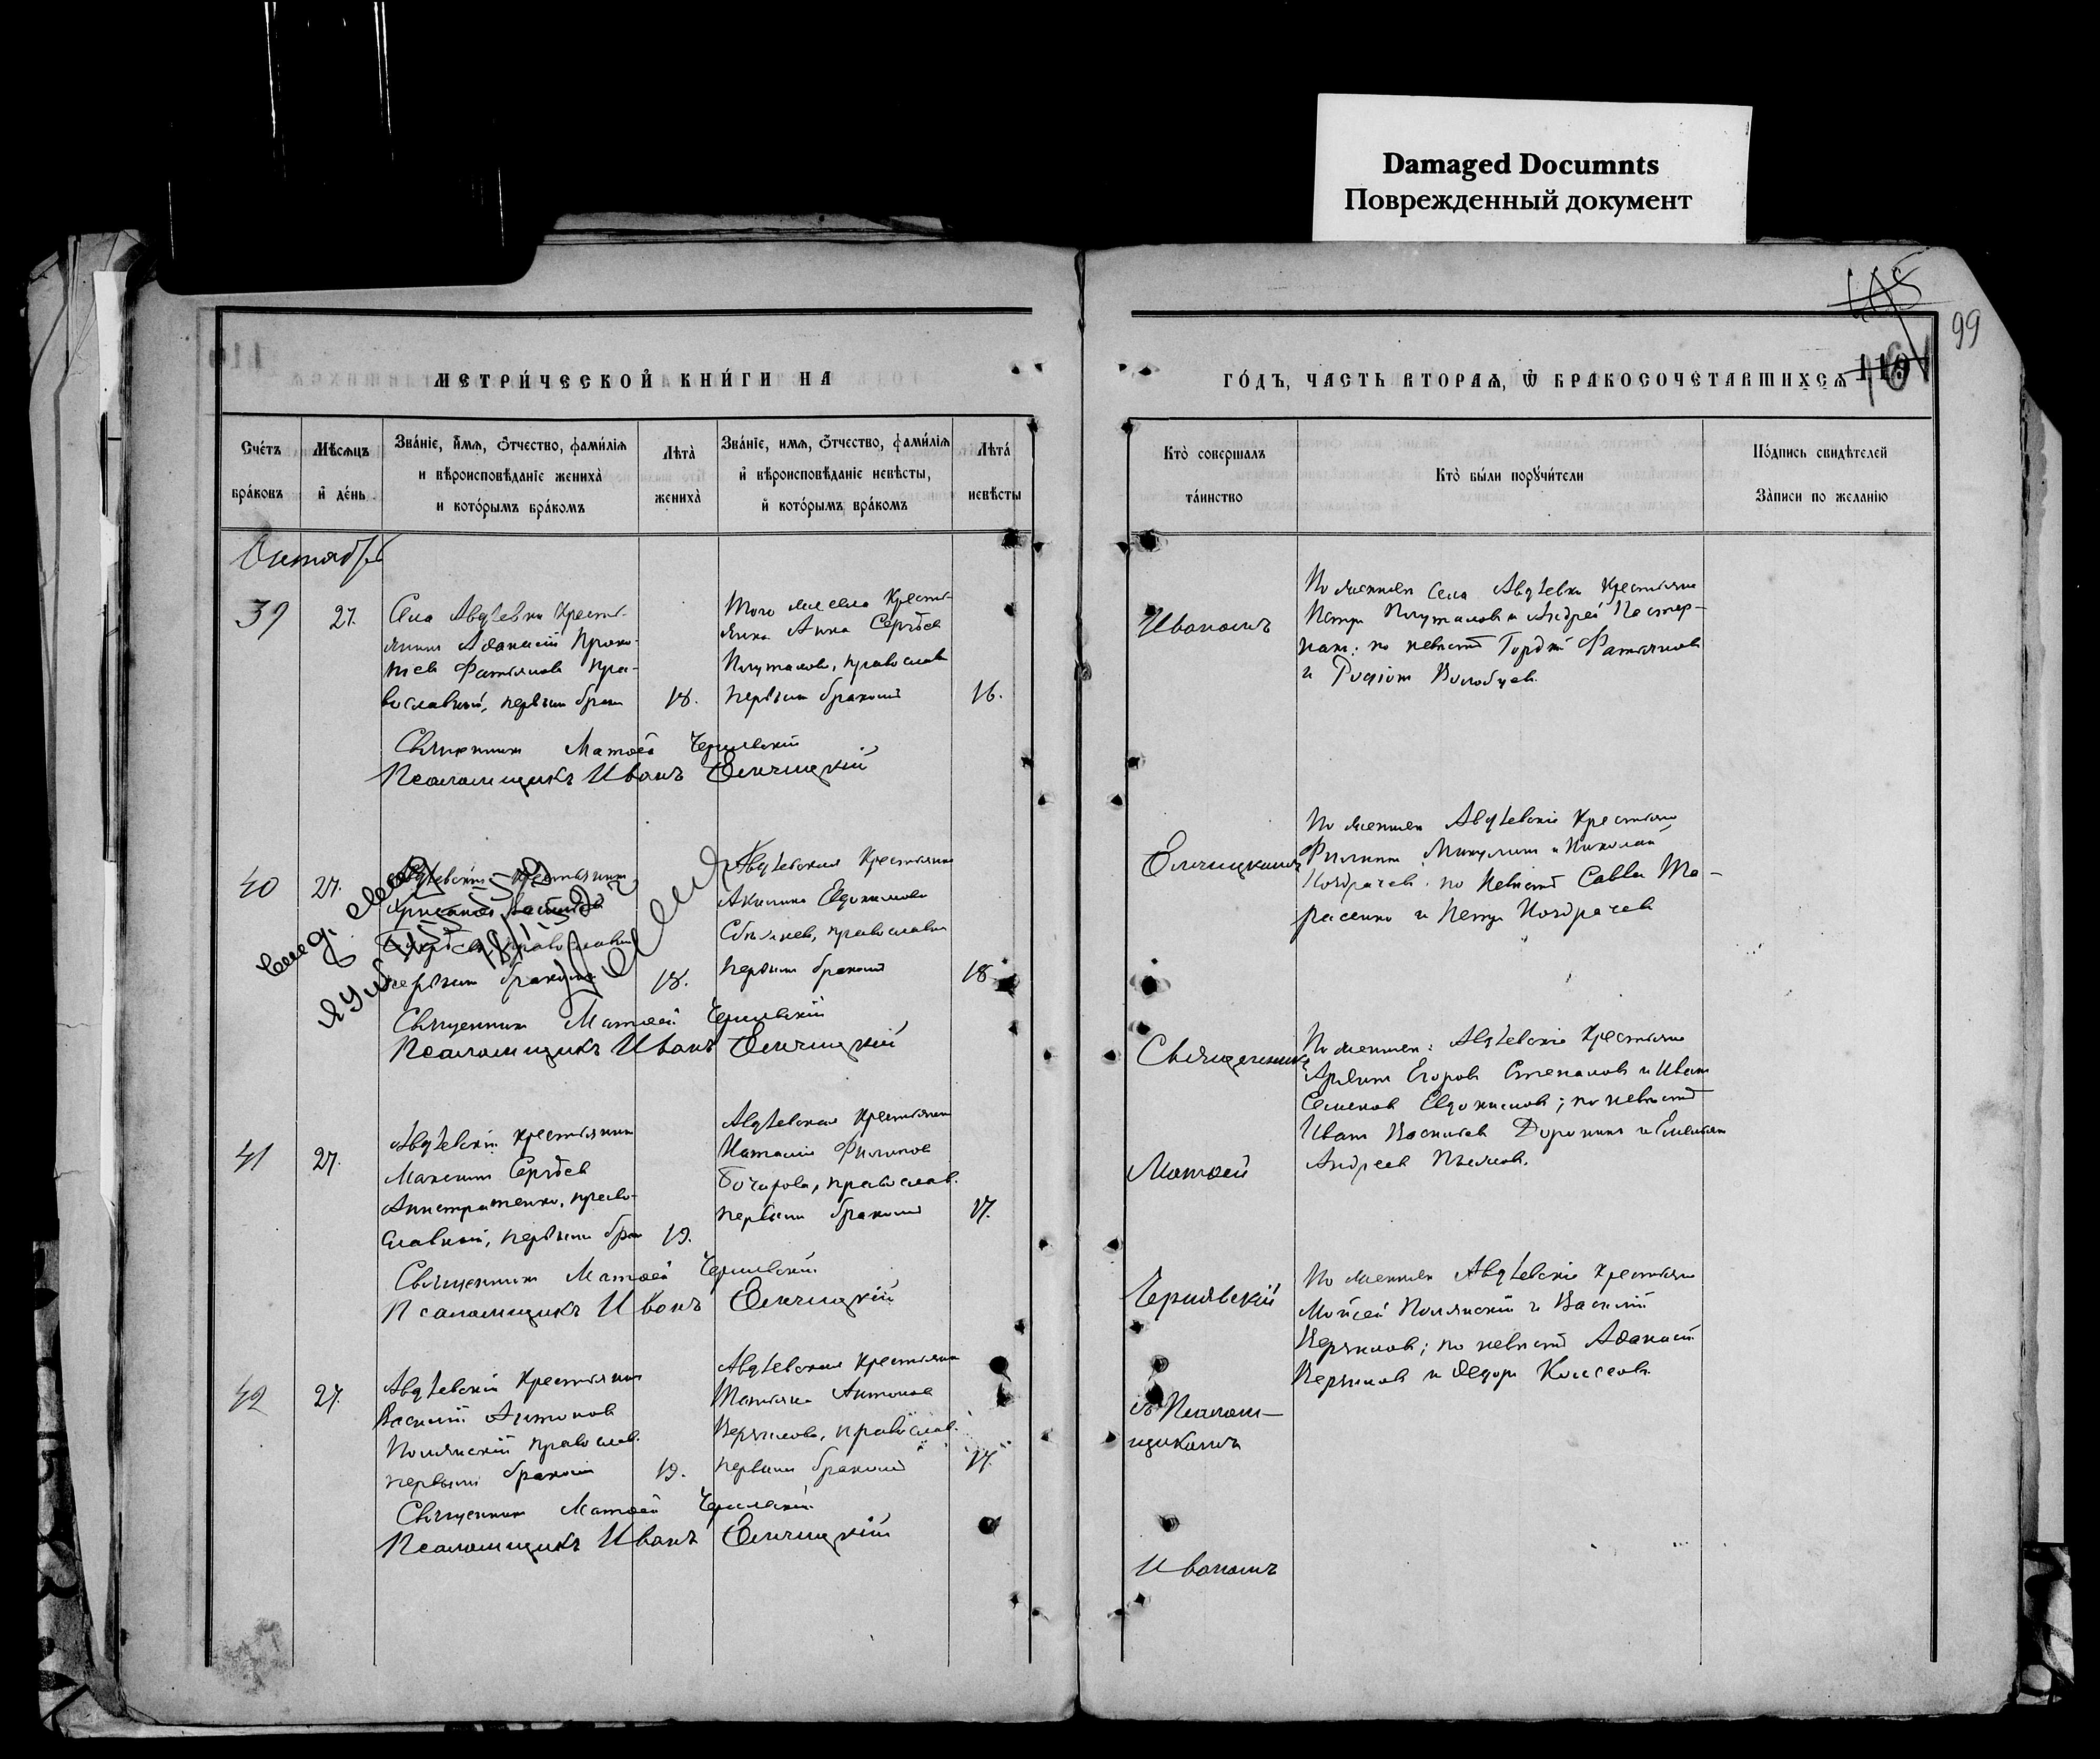 Damaged Documnts
Поврежденный документ
99
МЕТРИ́ЧЕСКОЙ КНИ́ГИ НА
Сче́тъ бра́ковъ
Мѣсяцъ и де́нь
Зва́нїе, и́мя, ѻ҆́тчество, фами́лїя
и вѣроисповѣ́данїе жениха̀
и кото́рымъ бра́комъ
Лѣта̀ жениха̀
Зва́нїе, имя, ѻ҆́тчество, фами́лїя
и҆ вѣроисповѣ́данїе невѣ́сты,
и҆ кото́рымъ бра́комъ
Лѣта́ невѣ́сты
Октябрь
39
27.
Села Авдѣевки Кресть-
янинъ Аѳанасій Проко-
піев Фатьянов Пра-
вославный, первым брак
18.
Того же села Кресть-
янка Анна Сергѣев
Плуталова, православ
первым браком
16.
Священник Матѳей Чернявскій
Псаломщикъ Иванъ Елчицкій
40
27.
Авдѣевскій Крестьянин
православный
первым браком
18.
Авдѣевская Крестьянка
Акилина Евдокимова
православн
первым браком
18
Священник Матѳей Чернявскій
Псаломщикъ Иванъ Елчицкій
41
27.
Авдѣевскій Крестьянин
Максим Сергѣев
Анистратенко, право-
славный, первым брак
19.
Авдѣевская Крестьянка
Наталія Филипова
Бочарова, православ.
первым браком
17.
Священник Матѳей Чернявскій
Псаломщикъ Иванъ Елчицкій
42
27.
Авдѣевскій Крестьянин
Василій Антонов
Полянскій православ.
первым браком
19.
Авдѣевская Крестьянка
Татьяна Антонова
православ.
первым браком
17.
Священник Матѳей Чернявскій
Псаломщикъ Иванъ Елчицкій
ГО́ДЪ, ЧА́СТЬ ВТОРА́Я, Ѽ БРАКОСОЧЕТА́ВШИХСЯ
Кто̀ соверша́лъ та́инство
Кто̀ бы́ли поручи́тели
По́дпись свидѣ́телей
За̀писи по жела́нїю
Иваномъ
По женихѣ села Авдѣевки Крестьяне
Петр Плуталов и Андрей Пестер-
по невѣстѣ Гордѣй Фатьянов
и Родіон
Елчицкимъ
По женихѣ Авдѣевскіе Крестьяне
Филипп Микулин и Николай
Ноздрачев. по невѣстѣ Савва Та-
расенко и Петр Ноздрачев
Священникъ
По женихѣ: Авдѣевскіе Крестьяне
Егоров Степанов и Иван
Семенов Евдокимов; по невѣстѣ
Иван Васильев Доронин и Емельян
Андреев
Матѳей
Чернявскій
По женихѣ Авдѣевскіе Крестьяне
Мойсей Полянскій и Василій
по невѣстѣ Аѳанасій
и Ѳедор
съ Псалом-
щикомъ
Иваномъ